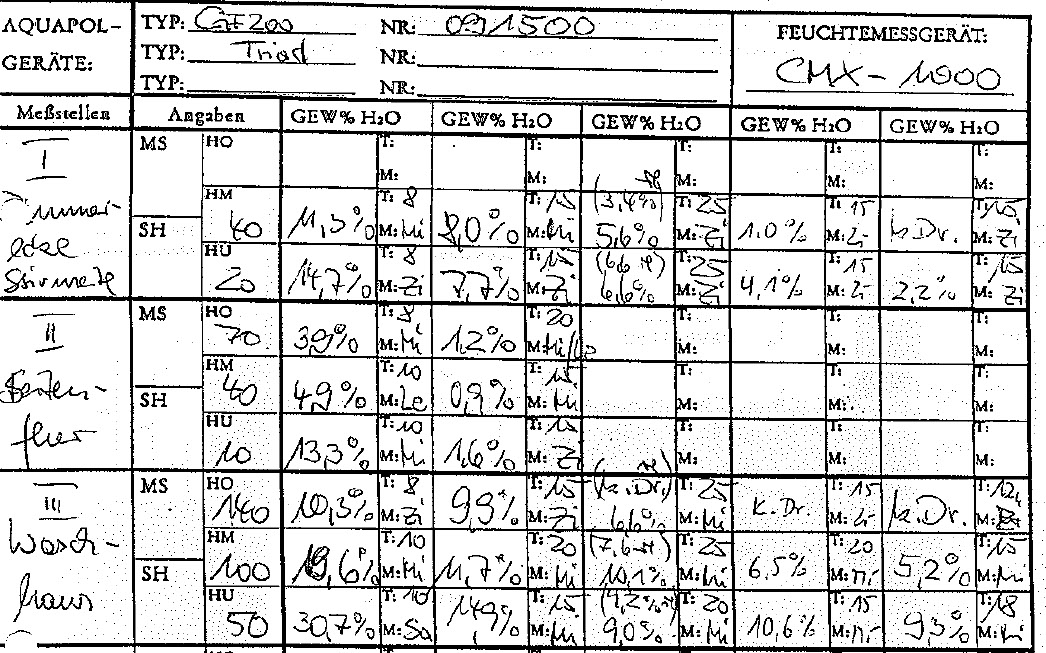 AQUAPOL- TYP: GE200 NR: 091500 FEUCHTEMESSGERÄT:
GERÄTE: TYP: NR: CMX-1000
TYP: NR:
Meßstellen Angaben GEW% H2O GEW% H2O GEW% H2O GEW% H2O GEW% H2O
I MS HO T: T: T: T: T:
M: M: M: M: M:
HM T: 8 T: 15 (3,4%) T: 25 T: 15 T: 15
SH 40 11,3% M: Mi 8,0% M: Mi 5,6% M: Zi 1.0% M: Zi k.Dr. M: Zi
HU T: 8 T: 15 T: 25 T: 15 T: 15
20 14,7% M: Zi 7,7% M: Zi 6,6% M: Zi 4,1% M: Zi 2,2% M: Zi
II MS HO T: 8 T: 20 T: T: T:
70 3,9% M: Mi 1,2% M: M: M: M:
HM T: 10 T: 15 T: T: T:
SH 40 4,9% M: Le 0,9% M: Mi M: M: M:
HU T: 10 T: 15 T: T: T:
10 13,3% M: Mi 1,6% M: Zi M: M: M:
III MS HO T: 8 T: 15 (k.Dr.) T: 25 T: 15 T: 12
140 10,3% M: Zi 9,9% M: Zi 6,6% M: Mi k.Dr. M: Zi k.Dr. M:
Wasch- HM T: 10 T: 20 T: 25 T: 20 T: 15
SH 100 19,6% M: Mi 11,7% M: Mi 10,1% M: Mi 6,5% M: Mi 5,2% M: Mi
haus HU T: 10 T: 15 T: 20 T: 15 T: 18
50 30,7% M: Sa 14,9% M: Mi 9,0% M: Mi 10,6% M: Mi 9,3% M: Mi